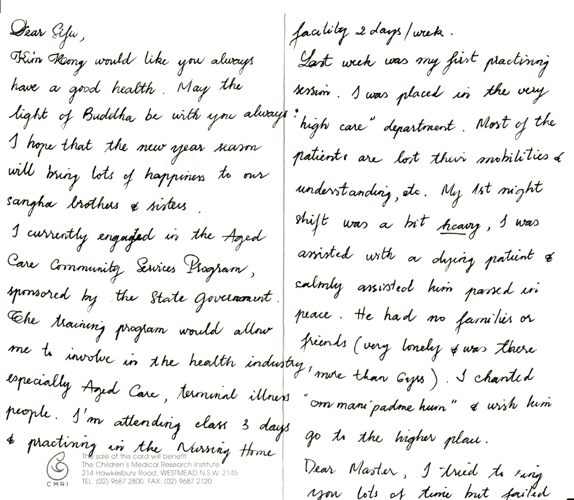 Dear Sifu,
Kim Hong would like you always
have a good health. May the
light of Buddha be with you always!
I hope that the new year season
will bring lots of happiness to our
sangha brothers & sisters.
I currently engaged in the Aged
Care Community Services Program,
sponsored by the State Government.
The training program would allow
me to involve in the health industry,
especially Aged Care, terminal illness
people. I'm attending class 3 days
& practining in the Nursing Home
The sale of this card will benefit
The Children's Medical Research Institute
214 Hawkesbury Road, WESTMEAD N.S.W. 2145
TEL. (02) 9687 2800 FAX: (02) 9687 2120
CMRI
facility 2 days/week.
Last week was my first practining
session. I was placed in the very
"high care" department. Most of the
patients are lost their mobilities &
understanding, etc. My 1st night
shift was a bit heavy, I was
assisted with a dying patient &
calmly assisted him passed in
peace. He had no families or
friends (very lonely & was there
more than 6yrs). I chanted
"om mani padme hum" & wish him
go to the higher place.
Dear Master, I tried to ring
you lots of time but failed